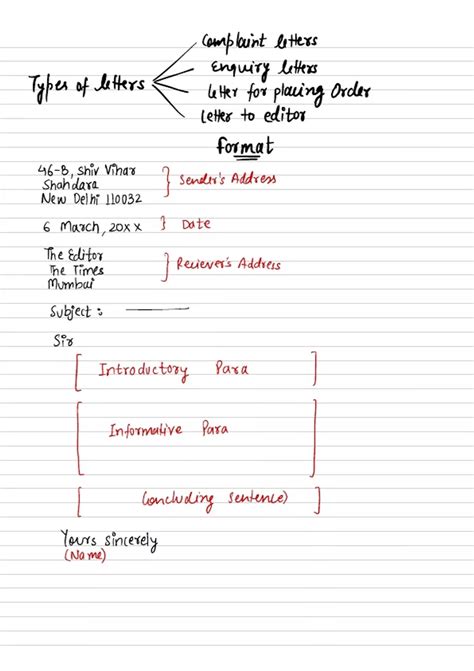 Complaint letters
Enquiry letters
Types of letters
letter for placing Order
Letter to editor
format
46-B, Shiv Vihar
Shahdara
New Delhi 110032
Sender's Address
6 March, 20xx
Date
The Editor
The Times
Mumbai
Reciever's Address
Subject :
Sir
Introductory Para
Informative Para
Concluding sentence)
Yours sincerely
(Name)